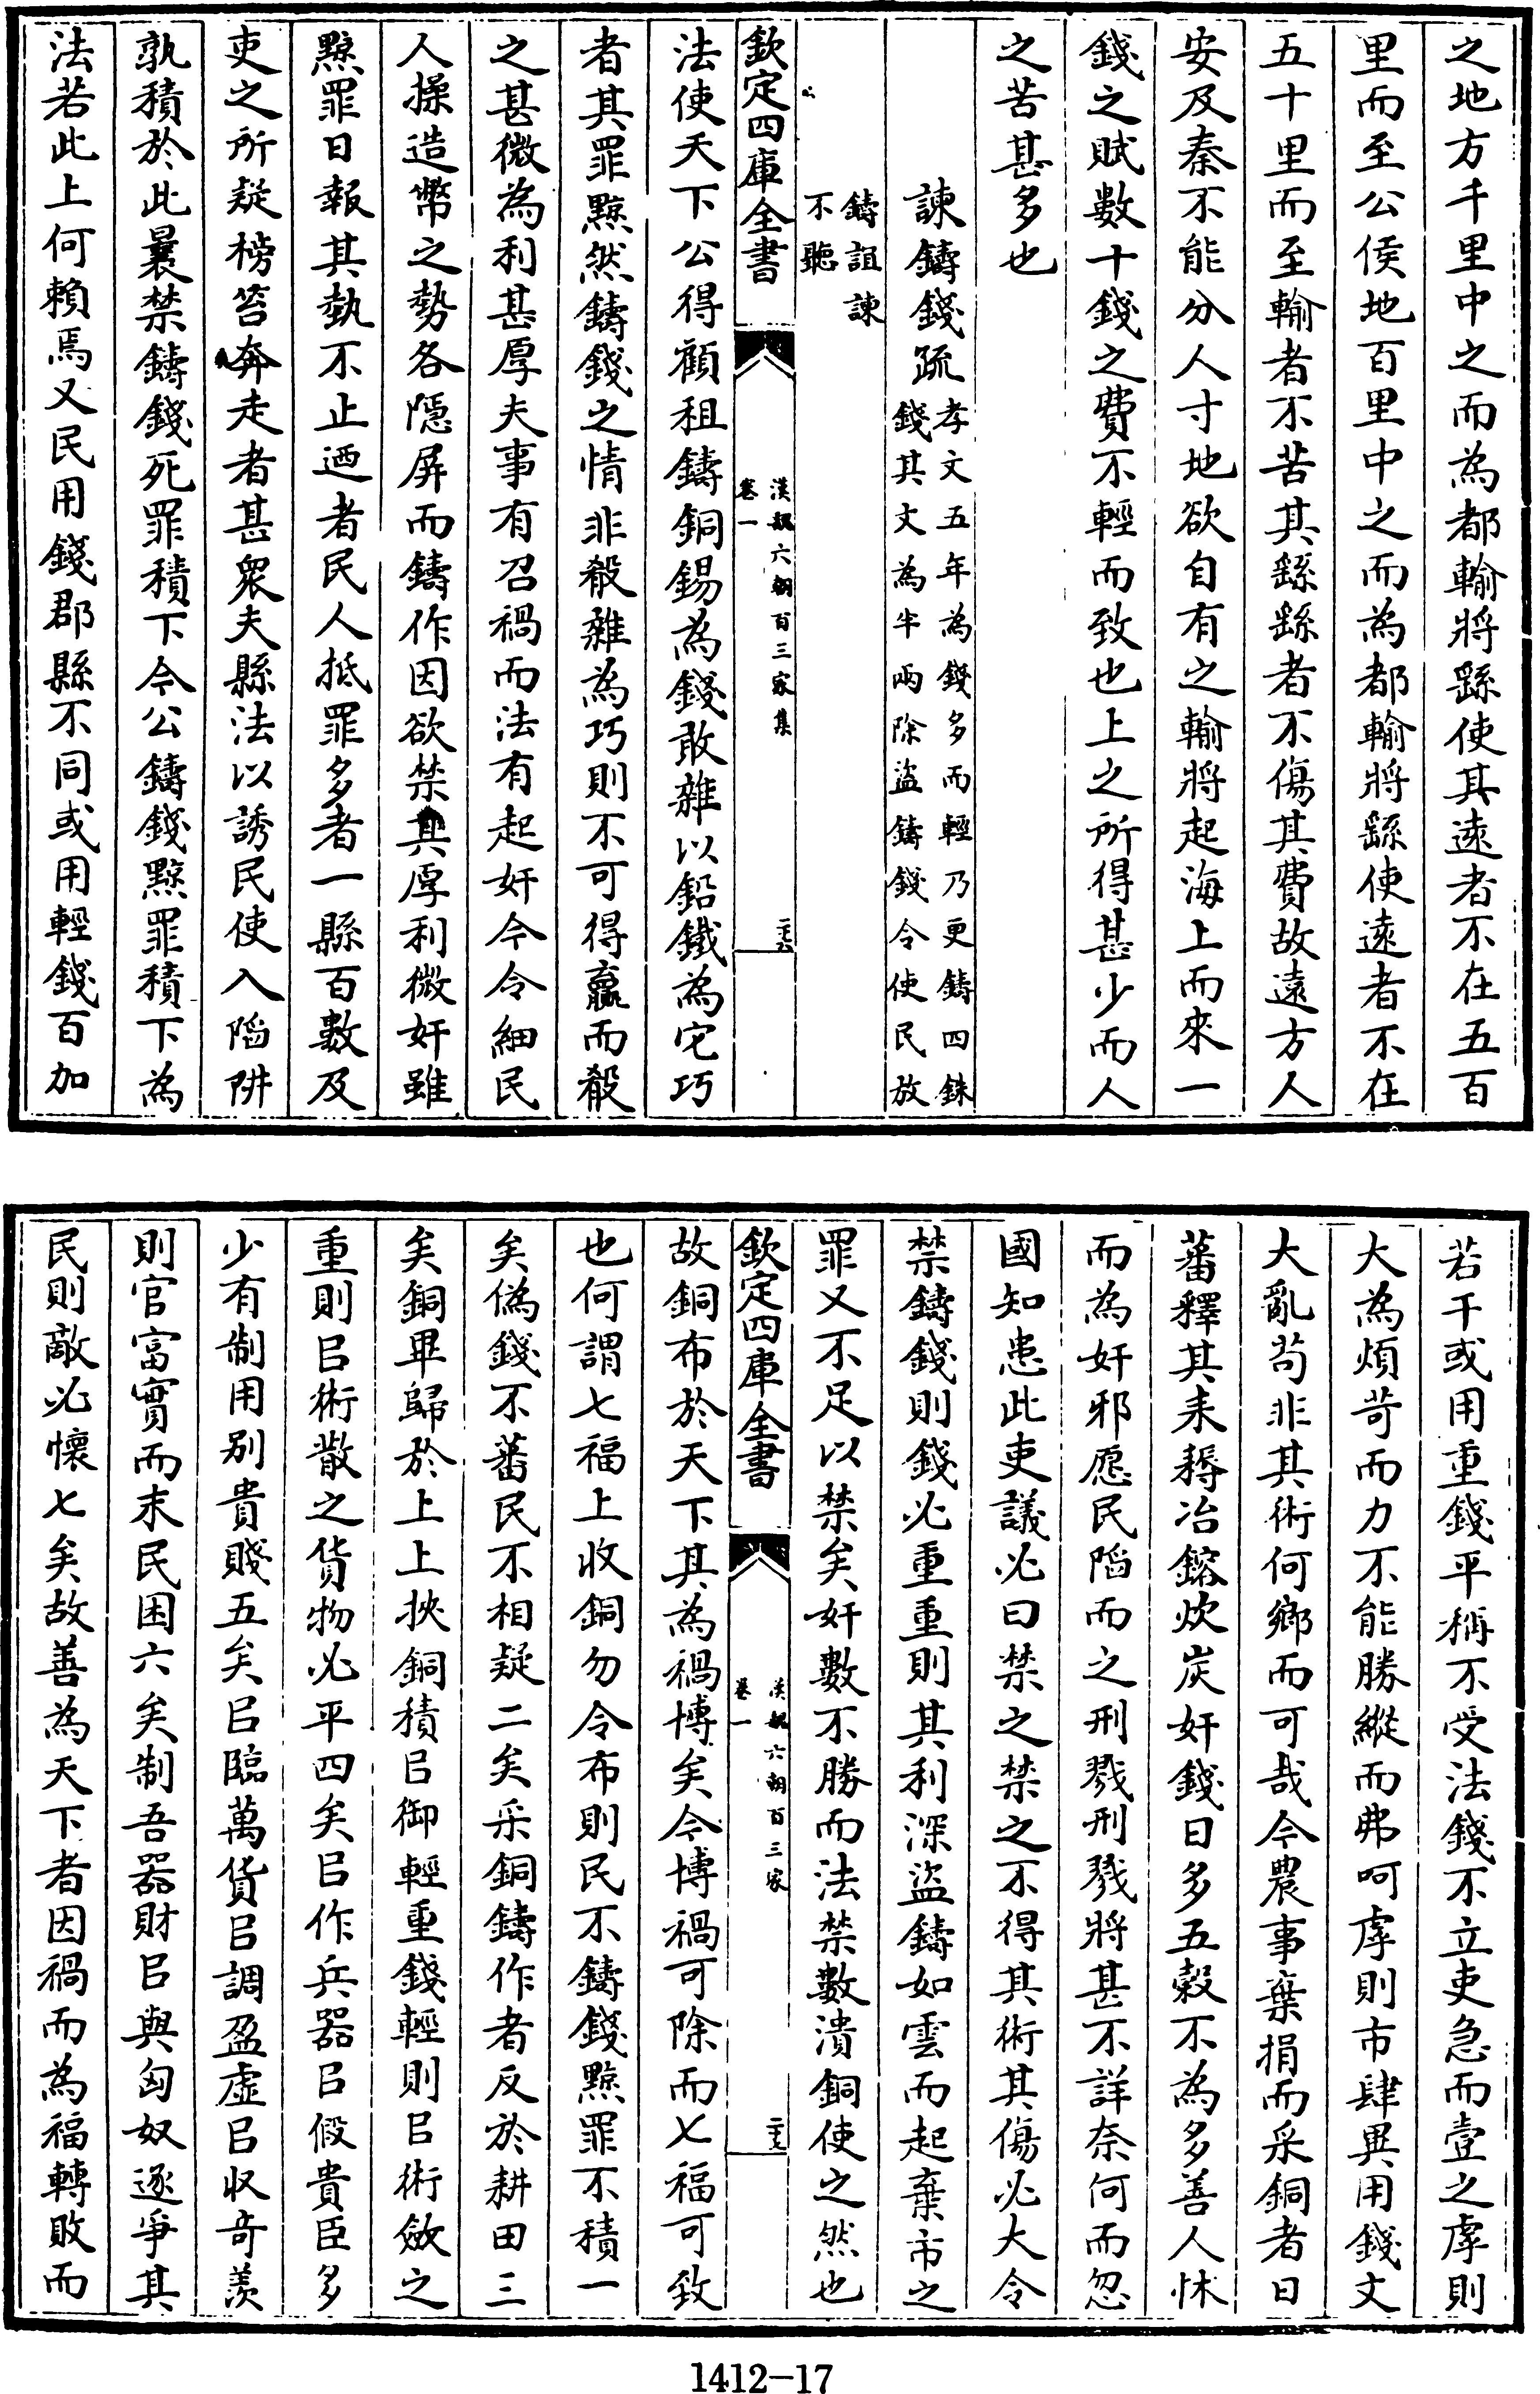 之地方千里中之而為都輸將繇使其遠者不在五百
里而至公侯地百里中之而為都輸將繇使遠者不在
五十里而至輸者不苦其繇繇者不傷其費故遠方人
安及秦不能分人寸地欲自有之輸將起海上而來一
錢之賦數十錢之費不輕而致也上之所得甚少而人
之苦甚多也
諫鑄錢疏
孝文五年為錢多而輕乃更鑄四銖
錢其文為半兩除盜鑄錢令使民放
鑄誼諫
不聽
欽定四庫全書
漢魏六朝百三家集
卷一
二十六
法使天下公得顧租鑄銅錫為錢敢雜以鉛鐵為它巧
者其罪黥然鑄錢之情非殽雜為巧則不可得贏而殽
之甚微為利甚厚夫事有召禍而法有起奸今令細民
人操造幣之勢各隱屏而鑄作因欲禁其厚利微奸雖
黥罪日報其埶不止廼者民人抵罪多者一縣百數及
吏之所疑榜笞奔走者甚衆夫縣法以誘民使入陷阱
孰積於此曩禁鑄錢死罪積下今公鑄錢黥罪積下為
法若此上何賴焉又民用錢郡縣不同或用輕錢百加
若干或用重錢平稱不受法錢不立吏急而壹之虖則
大為煩苛而力不能勝縱而弗呵虖則市肆異用錢文
大亂苟非其術何鄉而可哉今農事棄捐而采銅者日
蕃釋其耒耨冶鎔炊炭奸錢日多五穀不為多善人怵
而為奸邪愿民陷而之刑戮刑戮將甚不詳奈何而忽
國知患此吏議必曰禁之禁之不得其術其傷必大令
禁鑄錢則錢必重重則其利深盜鑄如雲而起棄市之
罪又不足以禁矣奸數不勝而法禁數潰銅使之然也
欽定四庫全書
漢魏六朝百三家
卷一
二十七
故銅布於天下其為禍博矣今博禍可除而七福可致
也何謂七福上收銅勿令布則民不鑄錢黥罪不積一
矣偽錢不蕃民不相疑二矣采銅鑄作者反於耕田三
矣銅畢歸於上上挾銅積㠯御輕重錢輕則㠯術斂之
重則㠯術散之貨物必平四矣㠯作兵器㠯假貴臣多
少有制用别貴賤五矣㠯臨萬貨㠯調盈虛㠯収竒羨
則官富實而末民困六矣制吾器財㠯與匈奴逐爭其
民則敵必懷七矣故善為天下者因禍而為福轉敗而
1412-17